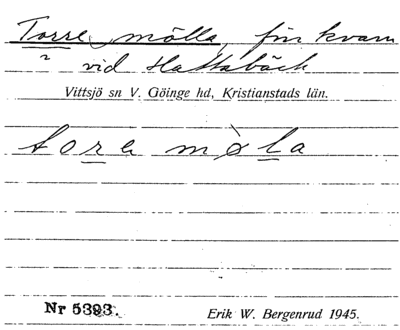 Torre mölla, för kvarn
? vid Hattabäck
Vittsjö sn V. Göinge hd, Kristianstads län.
tora möla
Nr 5393.
Erik W. Bergenrud 1945.